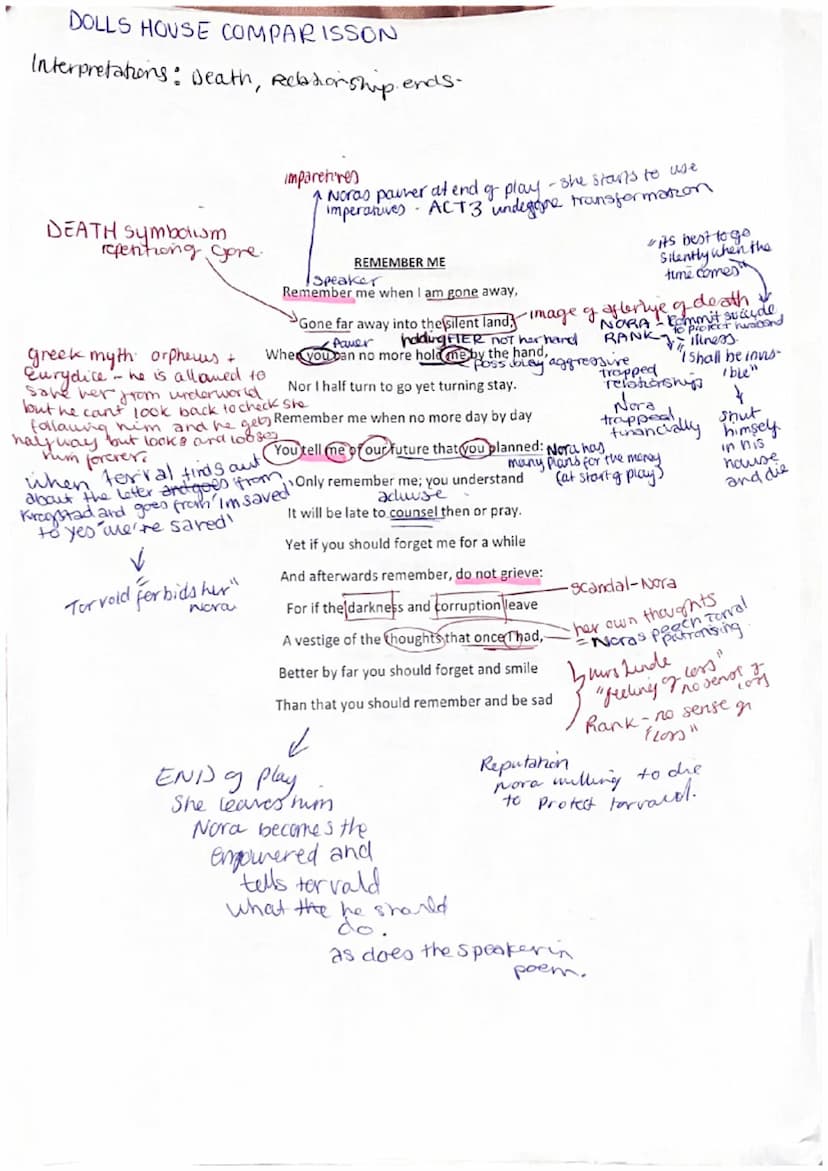 DOLLS HOUSE COMPARISSON
Interpretations: Death, Relationship ends-
imparetives
Noras pawer at end of play - she starts to use
imperatives - ACT3 undergone transformation
DEATH symbolism
repentiong gone.
"its best to go
silently when the
time comes"
REMEMBER ME
speaker
Remember me when I am gone away,
Gone far away into the silent land;
image of afterlife of death
NORA - commit suicide
to protect husband
RANK - illness.
"I shall be invis-
ible"
shut
himself
in his
hause
and die
Pawer
holding HER not her hand
When you can no more hold me by the hand,
possibley aggressive
trapped
relationship
Nora
trapped
financially
Nor I half turn to go yet turning stay.
Remember me when no more day by day
You tell me of our future that you planned:
Nora has
many plans for the money
(at start of play)
Only remember me; you understand
advise
It will be late to counsel then or pray.
Yet if you should forget me for a while
And afterwards remember, do not grieve:
For if the darkness and corruption leave
scandal-Nora
A vestige of the thoughts that once I had,
her own thoughts
= Noras peech Torval
patronising
Better by far you should forget and smile
Than that you should remember and be sad
Greek myth orpheus +
Eurydice - he is allowed to
save her from underworld
but he cant look back to check she
following him and he gets
halfway but looks and looses
hum forever.
when torval finds out
about the leter and goes from
Krogstad and goes from 'im saved
to yes 'we're saved'
Torvold "forbids her"
Nora
Mrs Linde
"feeling of loss"
no sense of
loss
Rank - no sense of
"loss"
Reputation
Nora willing to die
to protect torvald.
END of play
She leaves him
Nora becomes the
empowered and
tells torvald
what the he should
do.
as does the speaker in
poem.